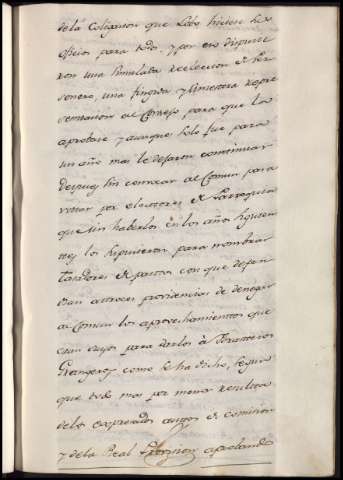 de la Coligacion que solo hiciese los
oficios para todo, y por eso dispusie
ron una simulada reeleccion de Per
sonero, una fingida y siniestra repre
sentacion al Consejo para que la
aprobase y aunque solo fue para
un año mas le dejaron continuar
despues sin convocar al Comun para
votar por electores de Parroquia
que sin haberlos en los años siguien
tes los supusieron para nombrar
tasadores de pastos con que defen
dian atroces providencias de denegar
al Comun los aprovechamientos que
eran suyos para darlos à Forasteros
Grangeros como se ha dicho, segun
que todo mas por menor resultaba
de los expresados autos de comision
y de la Real Provision aprobando